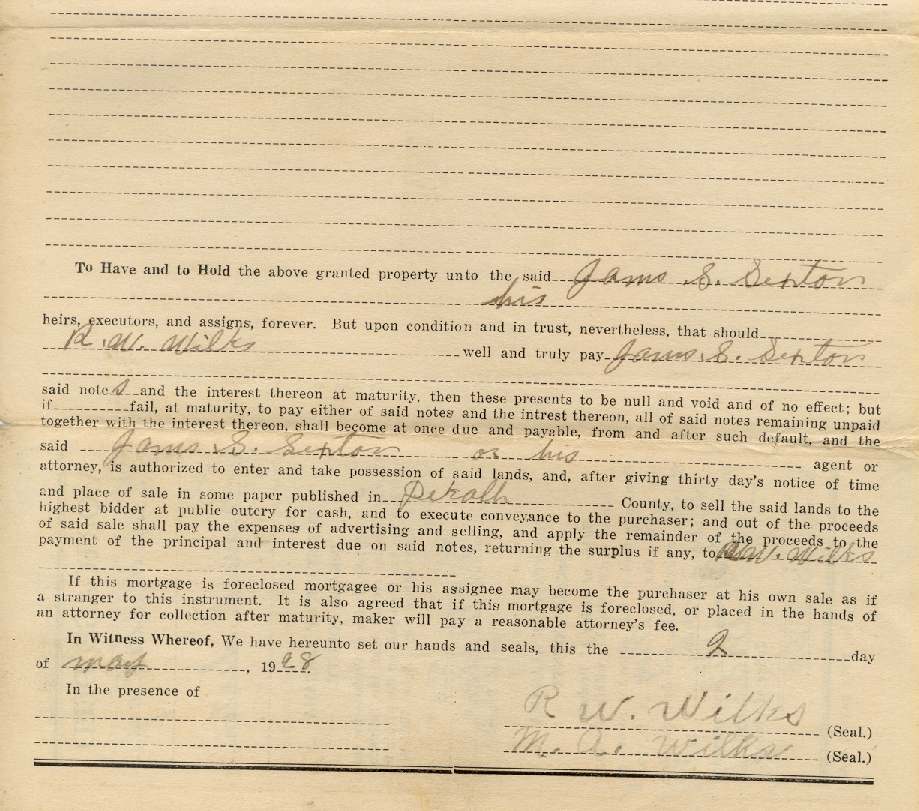 To Have and to Hold the above granted property unto the said James S. Sexton
his
heirs, executors, and assigns, forever. But upon condition and in trust, nevertheless, that should
R. W. Wilks well and truly pay James S. Sexton
said notes and the interest thereon at maturity, then these presents to be null and void and of no effect; but
if fail, at maturity, to pay either of said notes and the intrest thereon, all of said notes remaining unpaid
together with the interest thereon, shall become at once due and payable, from and after such default, and the
said James S. Sexton or his agent or
attorney, is authorized to enter and take possession of said lands, and, after giving thirty day's notice of time
and place of sale in some paper published in Dekalb County, to sell the said lands to the
highest bidder at public outcry for cash, and to execute conveyance to the purchaser; and out of the proceeds
of said sale shall pay the expenses of advertising and selling, and apply the remainder of the proceeds to the
payment of the principal and interest due on said notes, returning the surplus if any, to R. W. Wilks
If this mortgage is foreclosed mortgagee or his assignee may become the purchaser at his own sale as if
a stranger to this instrument. It is also agreed that if this mortgage is foreclosed, or placed in the hands of
an attorney for collection after maturity, maker will pay a reasonable attorney's fee.
In Witness Whereof, We have hereunto set our hands and seals, this the 2 day
of may, 1928.
In the presence of
R W. Wilks (Seal.)
M. A. Wilks (Seal.)